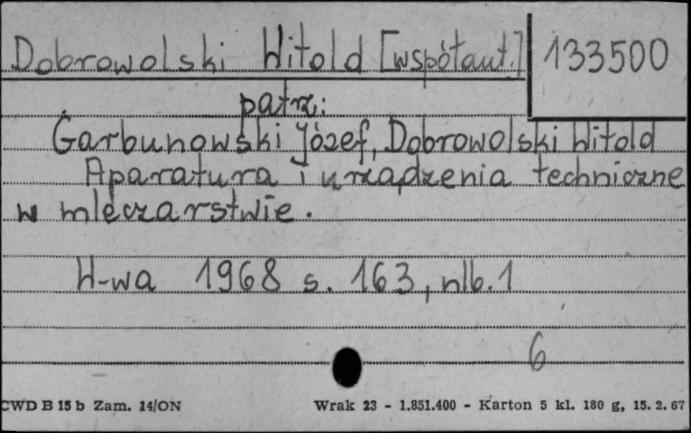 Dobrowolski Witold [współaut.] 133500
patrz:
Garbunowski Józef, Dobrowolski Witold
Aparatura i urządzenia techniczne
w mleczarstwie.
W-wa 1968 s. 163, nlb. 1
6
CWD B 15 b Zam. 14/ON Wrak 23 - 1.851.400 - Karton 5 kl. 180 g, 15. 2. 67